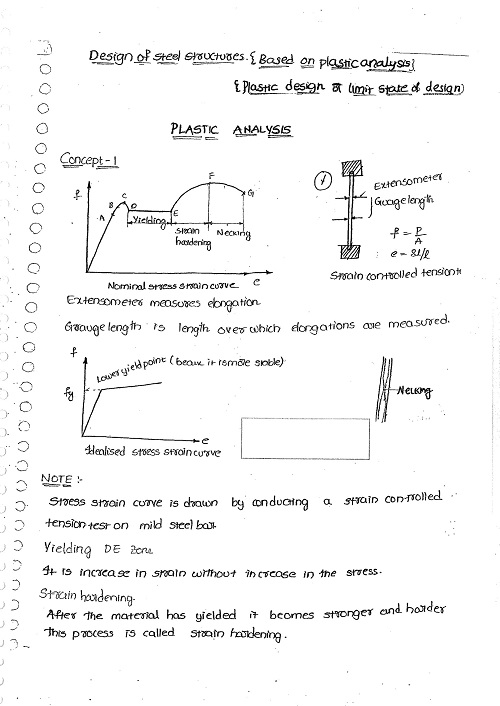 Design of steel structures. { Based on plastic analysis}
{ Plastic design or limit state of design)
PLASTIC ANALYSIS
Concept-1
f
A
B
C
D
E
F
G
Yielding
Strain hardening
Necking
Nominal stress strain curve
e
1
Extensometer
Guage length
f = P/A
e = δl/l
Strain controlled tension t
Extensometer measures elongation
Grauge length is length over which elongations are measured.
f
Lower yield point (becaue it is more stable)
fy
e
Idealised stress strain curve
Necking
NOTE :-
Stress strain curve is drawn by conducting a strain controlled
tension test on mild steel bar.
Yielding DE zone
It is increase in strain without increase in the stress.
Strain hardening.
After the material has yielded it becomes stronger and harder
this process is called strain hardening.